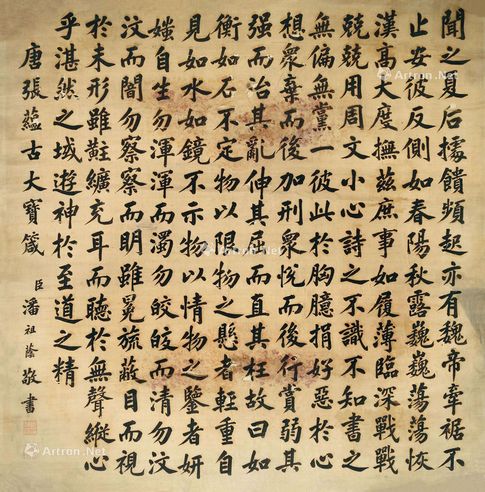 聞之夏后據饋頻起亦有魏帝牽裾不
止安彼反側如春陽秋露巍巍蕩蕩恢
漢高大度撫茲庶事如履薄臨深戰戰
兢兢用周文小心詩之不識不知書之
無偏無黨一彼此於胸臆捐好惡於心
想衆棄而後加刑衆悅而後行賞弱其
强而治其亂伸其屈而直其枉故曰如
衡如石不定物以限物之懸者輕重自
見如水如鏡不示物以情物之鑒者妍
媸自生勿渾渾而濁勿皎皎而清勿汶
汶而闇勿察察而眀雖冕旒蔽目而視
於未形雖黈纊充耳而聽於無聲縱心
乎湛然之域遊神於至道之精
唐張蘊古大寶箴
臣潘祖蔭敬書
Artron.Net
Artron.Net
Artron.Net
Artron.Net